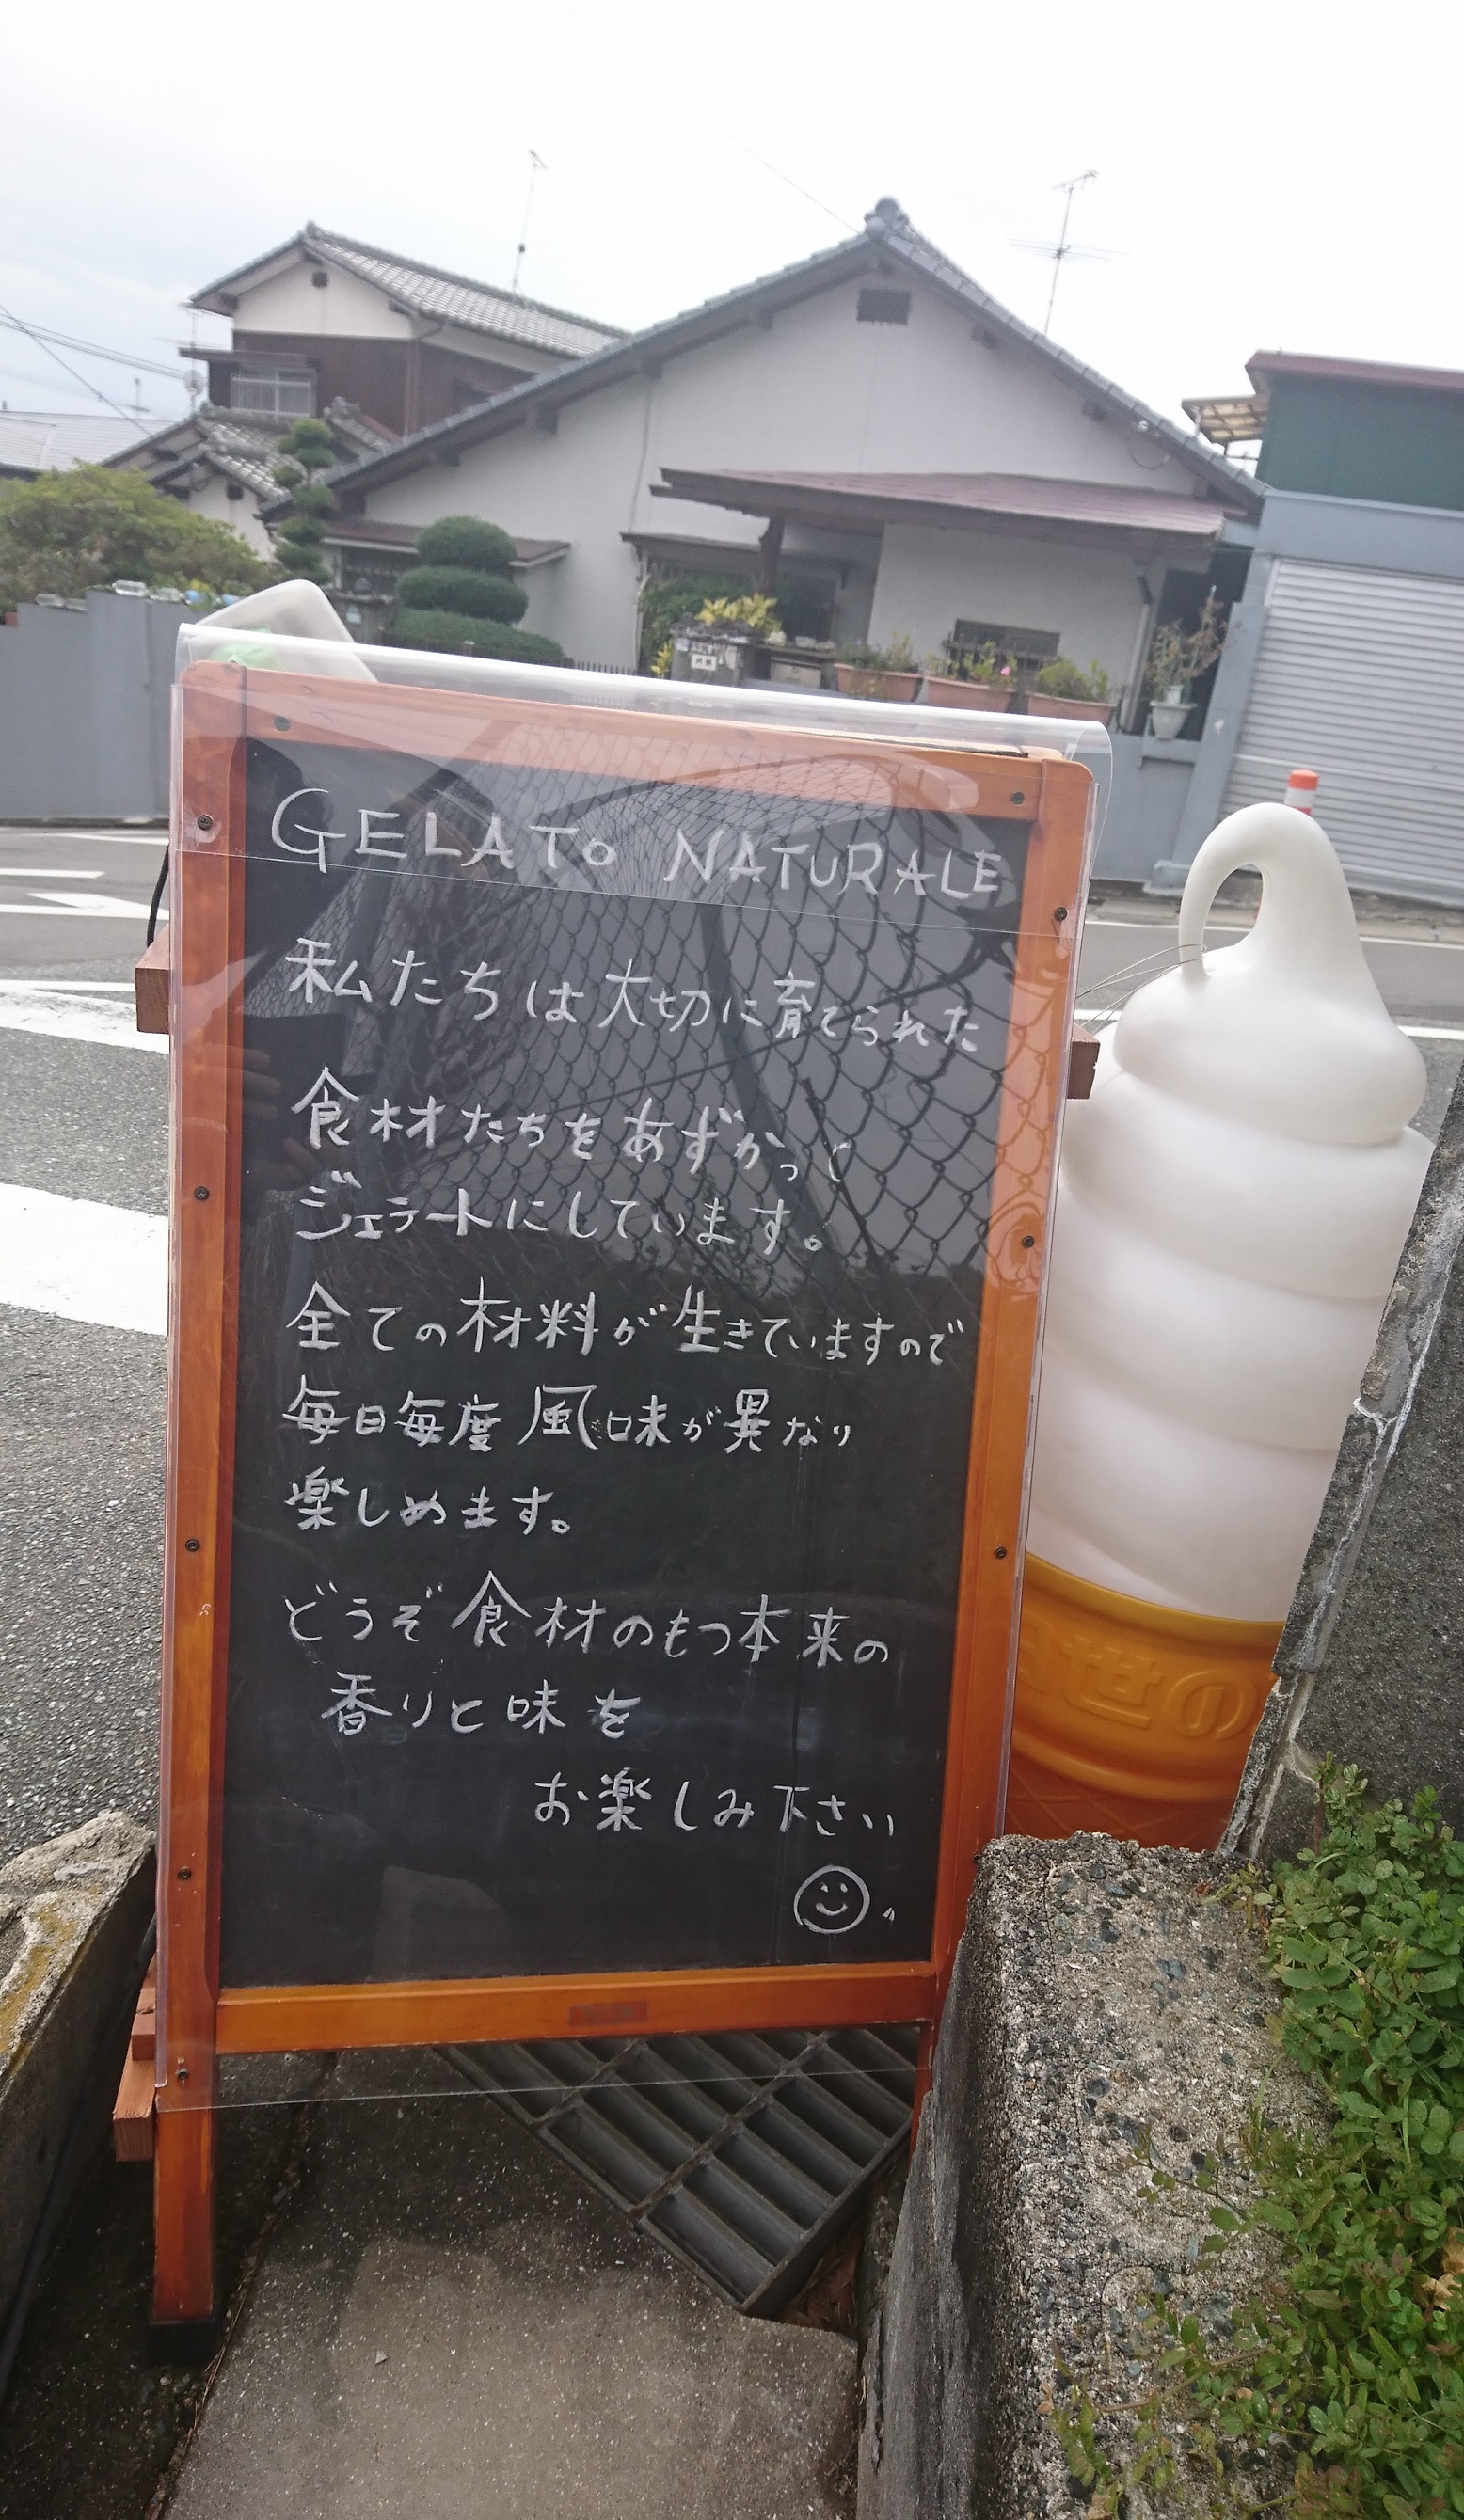 GELATO NATURALE
私たちは大切に育てられた
食材たちをあずかって
ジェラートにしています。
全ての材料が生きていますので
毎日毎度風味が異なり
楽しめます。
どうぞ食材のもつ本来の
香りと味を
お楽しみ下さい
世の